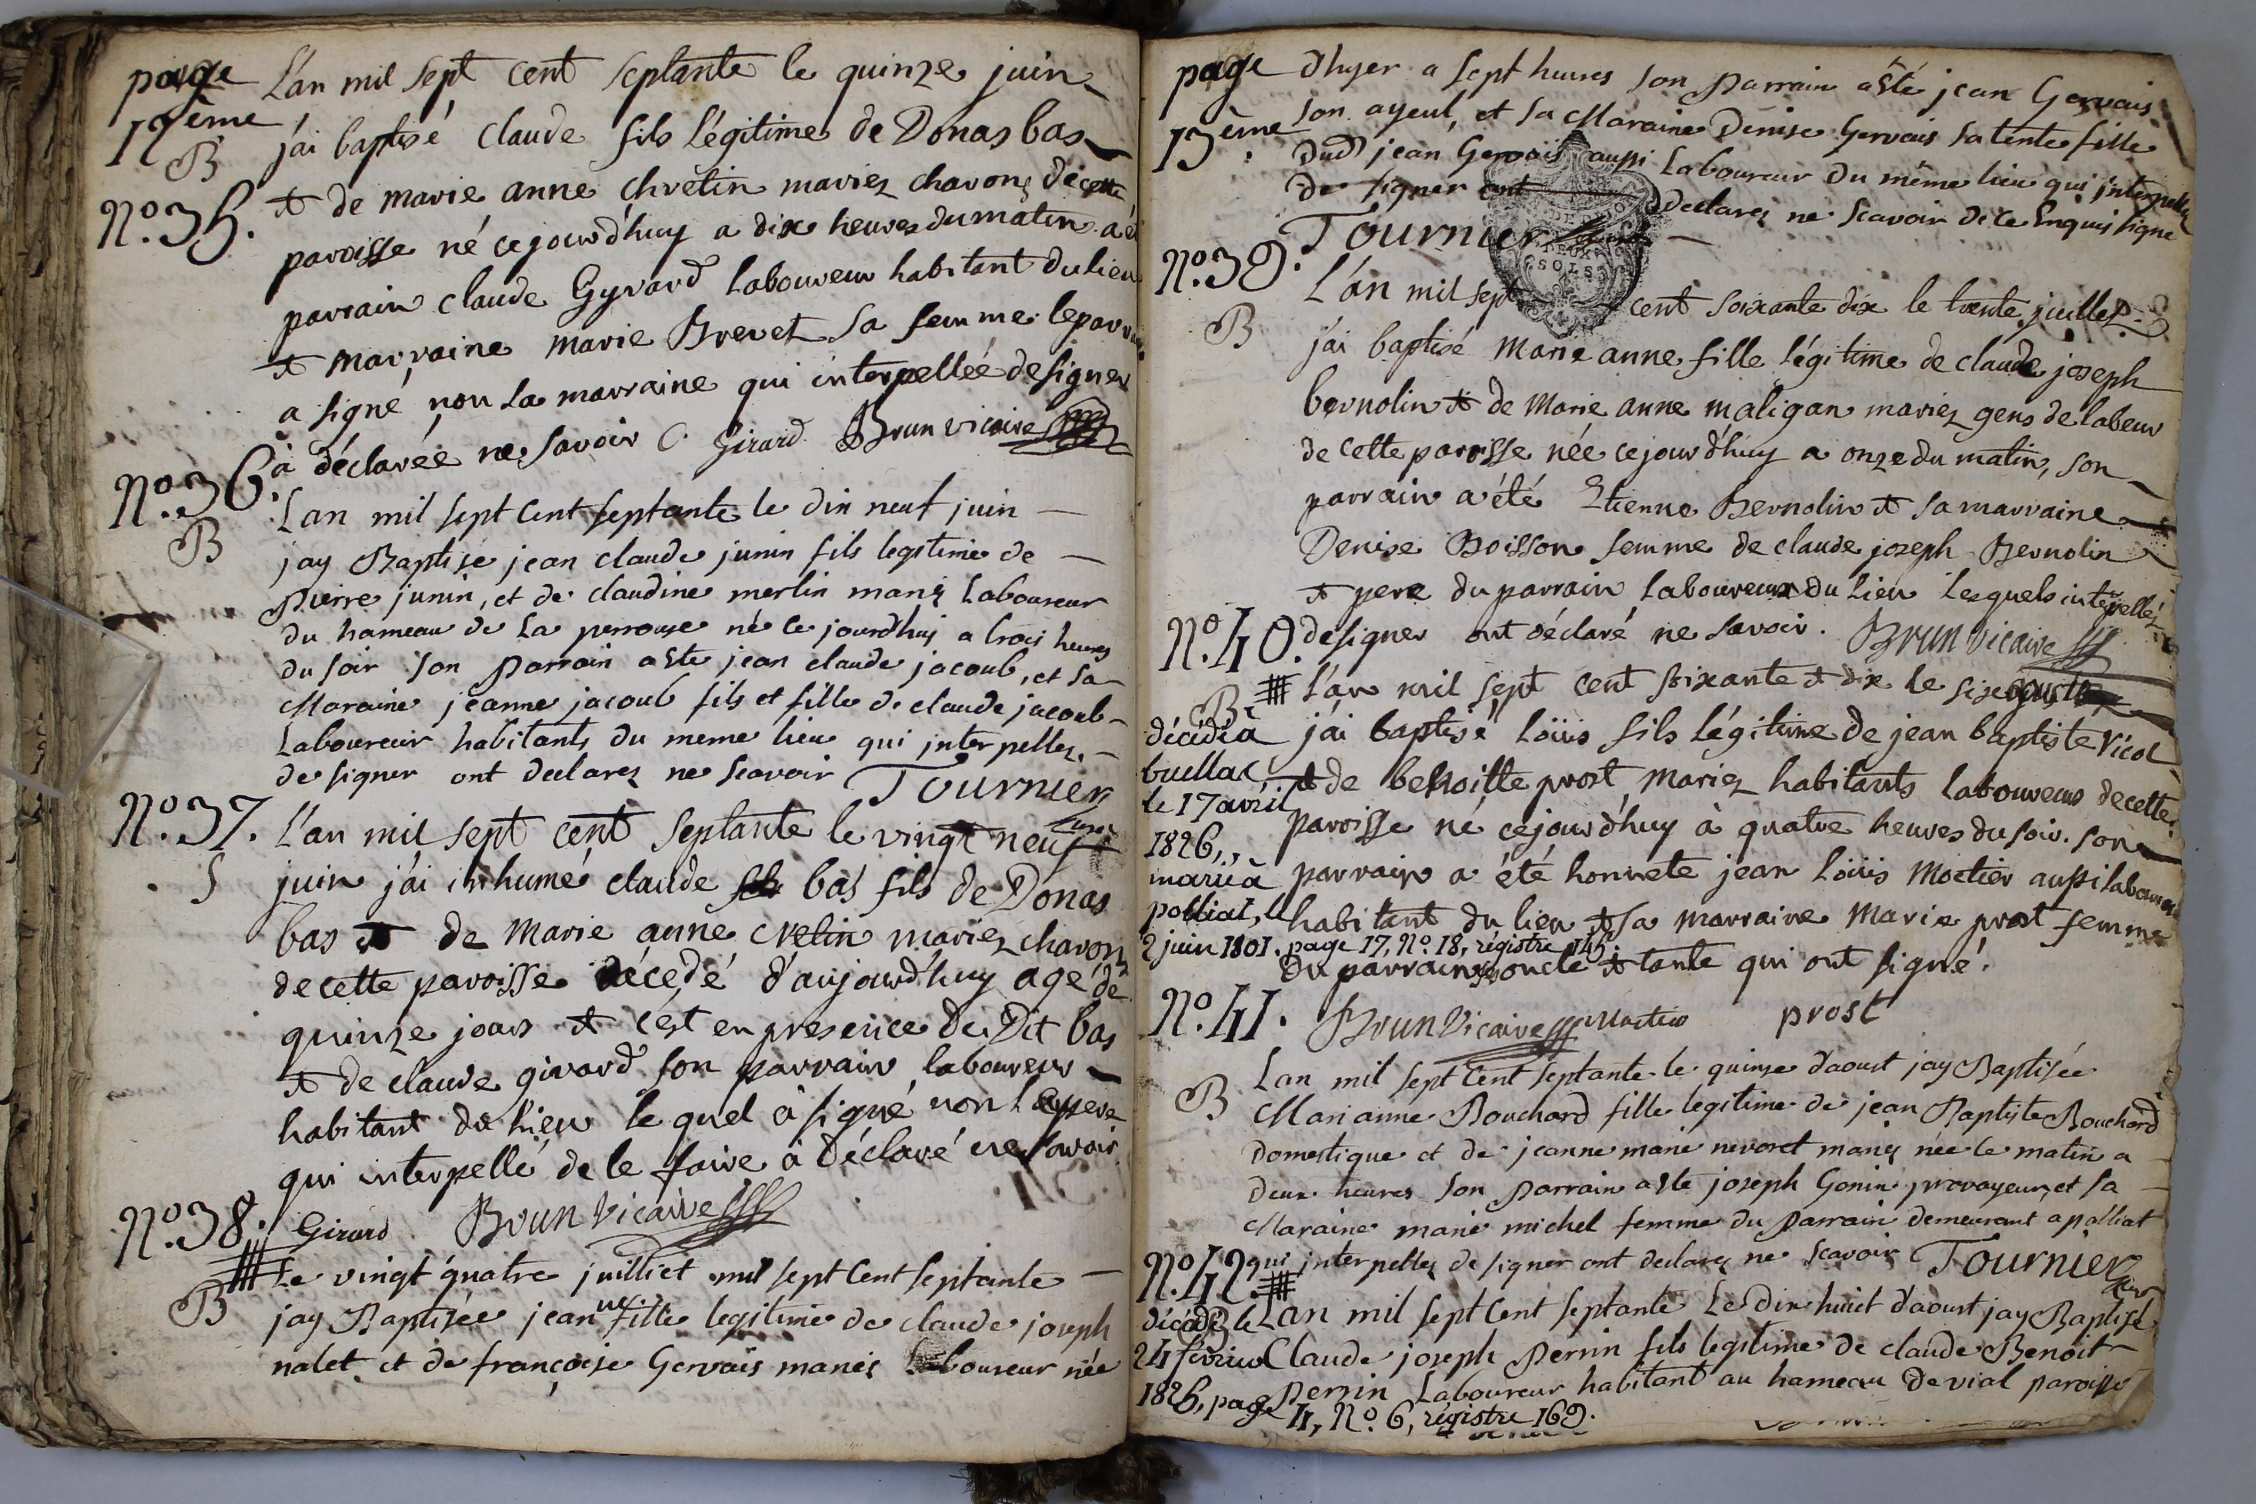 page
12ème
B
N°. 35.
L'an mil sept cent septante le quinze juin
j'ai baptisé claude fils légitime de Donas bas
et de marie anne chrétin mariez charons de cette
paroisse né cejourd'huy a dix heures du matin a été
parrain claude Gyrard laboureur habitant du lieu
et marraine marie Brevet sa femme le parrain
a signé, non la marraine qui interpellée de signer
à déclarée ne savoir C. Girard Brun vicaire
N°. 36.
B
L'an mil sept cent septante le dix neuf juin
jay Baptisé jean claude junin fils legitime de
Pierre junin, et de claudine merlin mariés Laboureur
du hameau de La perrouse né ce jourdhuy a trois heures
du soir son Parrain a esté jean claude jacoub, et sa
Maraine jeanne jacoub fils et fille de claude jacoub
Laboureur habitants du meme lieu qui interpellez
de signer ont declarez ne scavoir Tournier
curé
N°. 37.
S
L'an mil sept cent septante le vingt neuf
juin j'ai inhumé claude bas fils de Donas
bas et de Marie anne Cretin mariez charons
de cette paroisse décedé d'aujourd'huy agé de
quinze jours et c'est en presence du Dit bas
et de claude girard son parrain laboureur
habitant du lieu le quel à signé non le pere
qui interpellé de le faire à déclaré ne savoir
Girard Brun Vicaire
N°. 38.
B
Le vingt quatre juilliet mil sept cent septante
jay Baptisée jeanne fille legitime de claude joseph
nalet et de françoise Gervais mariés Laboureur née
page
13ème
d'hyer a sept heures son Parrain a esté jean Gervais
son ayeul, et sa Maraine Denise Gervais sa tente fille
dud jean Gervais aussi Laboureur du même lieu qui interpellez
de signer ont Declarez ne scavoir de ce Enquis signe
Tournier
DEUX
SOLS
N°. 39.
B
L'an mil sept cent soixante dix le trente juillet
j'ai baptisé Marie anne fille légitime de claude joseph
bernolin et de Marie anne maligan mariez gens de labeur
de cette paroisse née cejourd'huy a onze du matin, son
parrain a été Etienne Bernolin et sa marraine
Denise Boisson femme de claude joseph Bernolin
et pere du parrain laboureurs du lieu lesquels interpellés
de signer ont déclaré ne savoir. Brun Vicaire
N°. 40.
B
L'an mil sept cent soixante et dix le six
j'ai baptisé loüis fils légitime de jean baptiste Vicol
et de benoitte prost mariez habitants laboureurs de cette
paroisse né cejourd'huy à quatre heures du soir. son
parrain a été honnete jean loüis Moctier aussi laboureur
habitant du lieu et sa marraine Marie prost femme
du parrain oncle et tante qui ont signé.
Brun Vicaire Moctier prost
décédé à
buellas,
le 17 avril
1826,,
marié à
polliat, le
2 juin 1801. page 17, N°. 18, régistre 145.
N°. 41.
B
L'an mil sept cent septante le quinze d'aoust jay Baptisée
Marianne Bouchard fille legitime de jean Baptiste Bouchard
domestique et de jeanne marie nevoret mariés née le matin a
deux heures son Parrain a esté joseph Gonin provayeur, et sa
Maraine marie michel femme du Parrain demeurant a polliat
qui interpellez de signer ont declarez ne scavoir Tournier
N°. 42.
B
L'an mil sept cent septante Le dix huict d'aoust jay Baptisé
Claude joseph Perrin fils legitime de claude Benoit
Perrin Laboureur habitant au hameau de vial paroisse
décédé le
24 février
1826, page 4, N°. 6, régistre 169.